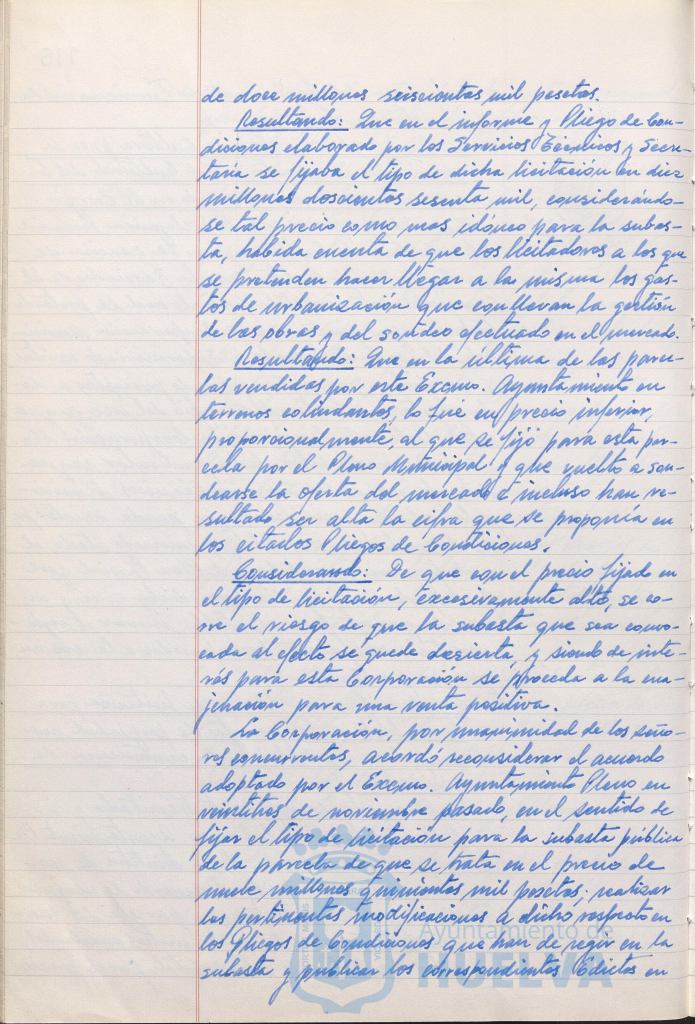 de doce millones seiscientas mil pesetas.
Resultando: Que en el informe y Pliego de Con-
diciones elaborado por los Servicios Técnicos y Secre-
taría se fijaba el tipo de dicha licitación en diez
millones doscientas sesenta mil, considerándo-
se tal precio como mas idóneo para la subas-
ta, habida cuenta de que los licitadores a los que
se pretenden hacer llegar a la misma los gas-
tos de urbanización que conllevan la gestión
de las obras y del sondeo efectuado en el mercado.
Resultando: Que en la última de las parce-
las vendidas por este Excmo. Ayuntamiento en
terrenos colindantes, lo fué en precio inferior,
proporcionalmente, al que se fijó para esta par-
cela por el Pleno Municipal y que vuelto a son-
dearse la oferta del mercado é incluso han re-
sultado ser alta la cifra que se proponía en
los citados Pliegos de Condiciones.
Considerando: De que con el precio fijado en
el tipo de licitación, excesivamente alto, se co-
rre el riesgo de que la subasta que sea convo-
cada al efecto se quede desierta, y siendo de inte-
rés para esta Corporación se proceda a la ena-
jenación para una venta positiva.
La Corporación, por unanimidad de los seño-
res concurrentes, acordó reconsiderar el acuerdo
adoptado por el Excmo. Ayuntamiento Pleno en
veintitres de noviembre pasado, en el sentido de
fijar el tipo de licitación para la subasta pública
de la parcela de que se trata en el precio de
nueve millones quinientas mil pesetas, realizar
las pertinentes modificaciones a dicho respecto en
los Pliegos de Condiciones que han de regir en la
subasta y publicar los correspondientes Edictos en
Ayuntamiento de
HUELVA